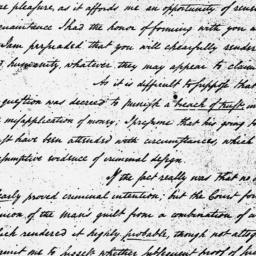 pleasure, as it affords me an opportunity of
I had the honor of forming with you
I am persuaded that you will chearfully render
humanity, whatever they may appear to claim
As it is difficult to suppose that
question was decreed to punish a breach of trust
misapplication of money; I presume that his going to
have been attended with circumstances, which
presumptive evidence of criminal design.
If the fact really was that no
clearly proved criminal intention; but the Court
of the man's guilt from a combination of
which rendered it highly probable, though not
me to